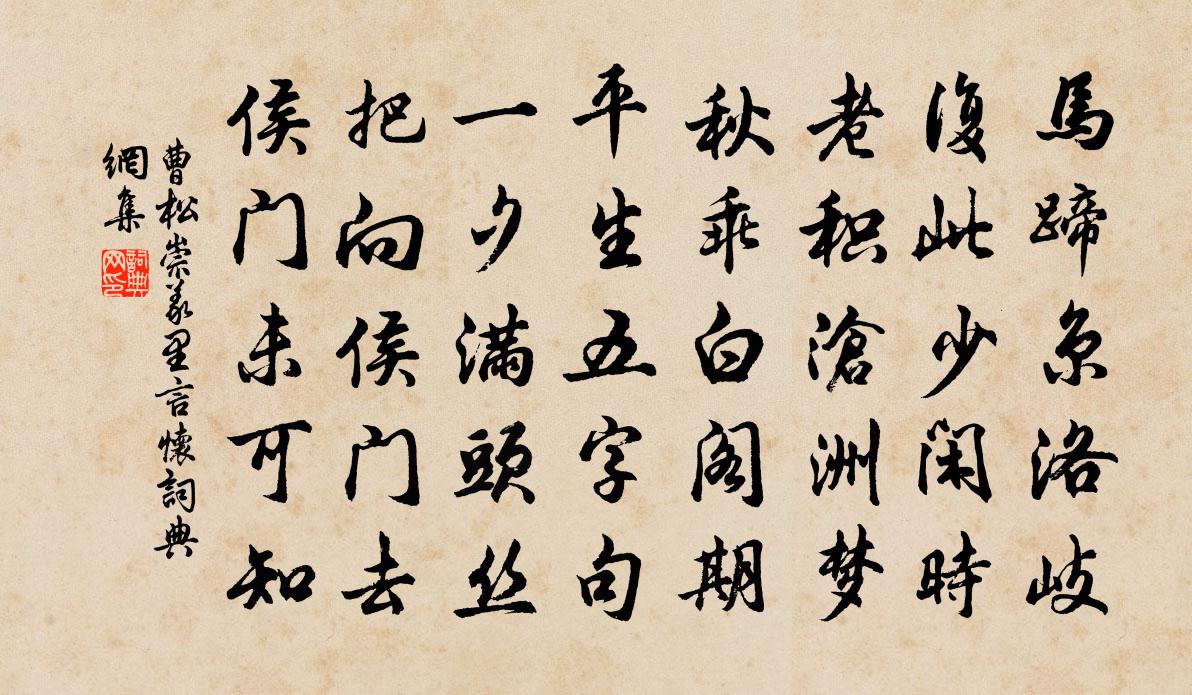 馬蹄京洛岐
復此少閑時
老积滄洲梦
秋乖白阁期
平生五字句
一夕满頭丝
把向侯门去
侯门未可知
曹松崇義里言懷詞典
網集
詞典网印